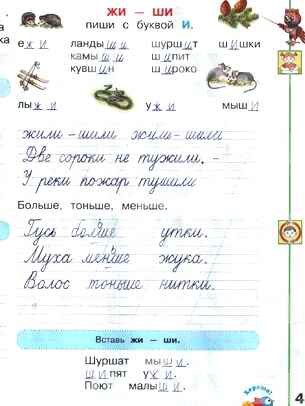 ЖИ – ШИ
пиши с буквой И.
ежи ландыши шуршит шишки
камыши шипит
кувшин широко
лыжи ужи мыши
жили – шили жили – шили
Две сороки не тужили. –
У реки пожар тушили
Больше, тоньше, меньше.
Гусь больше утки.
Муха меньше жука.
Волос тоньше нитки.
Вставь жи – ши.
Шуршат мыши.
Шипят ужи.
Поют малыши.
Хорошо!
4